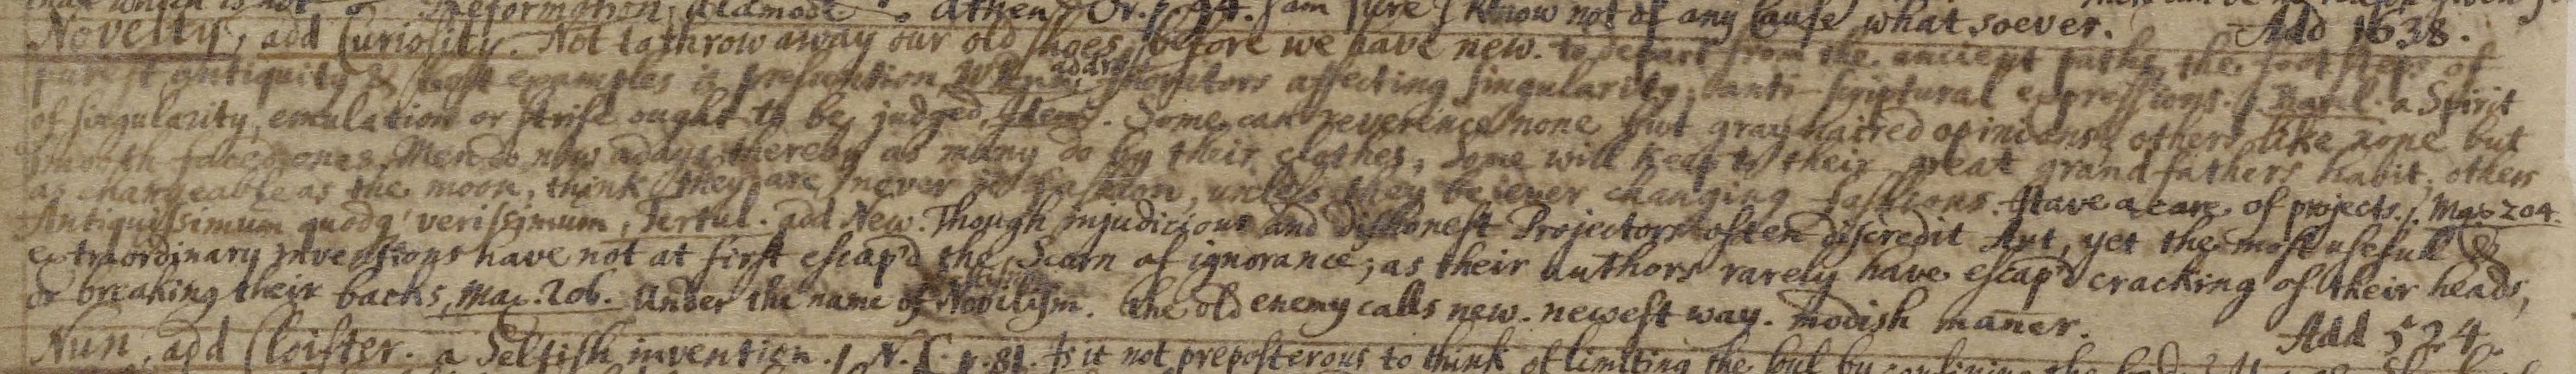 that which is not Reformation, oldmode. Athen Or. p. 94. I am sure I know not of any cause whatsoever. Add 1638.
Novelty, add Curiosity. Not to throw away our old shoes, before we have new. to depart from the ancient paths, the footsteps of
purest antiquity & best examples is presumption, Innovators affecting singularity, & anti-scriptural expressions. a Spirit
of singularity, emulation or strife ought to be judged, Idem. Some can reverence none but gray haired opinions, others like none but
smooth faced ones, Men do now adays thereby as many do by their clothes, Some will keep to their great grandfathers habit, others
as changeable as the moon, think they are never in fashion, unless they be ever changing fashions. Have a care of projects. Mac. 204.
Antiquissimum quodq' verissimum, Tertul. add New. Though injudicious and dishonest Projectors often discredit Art, yet the most useful &
extraordinary inventions have not at first escap'd the Scorn of ignorance; as their authors rarely have escap'd cracking of their heads,
or breaking their backs, Mac. 206. Under the name of Novelism. the old enemy calls new. newest way. modish maner.
Nun, add Cloister. a Selfish invention. N. C. p. 81. Is it not preposterous to think of limiting the soul by confining the body? Add 524.